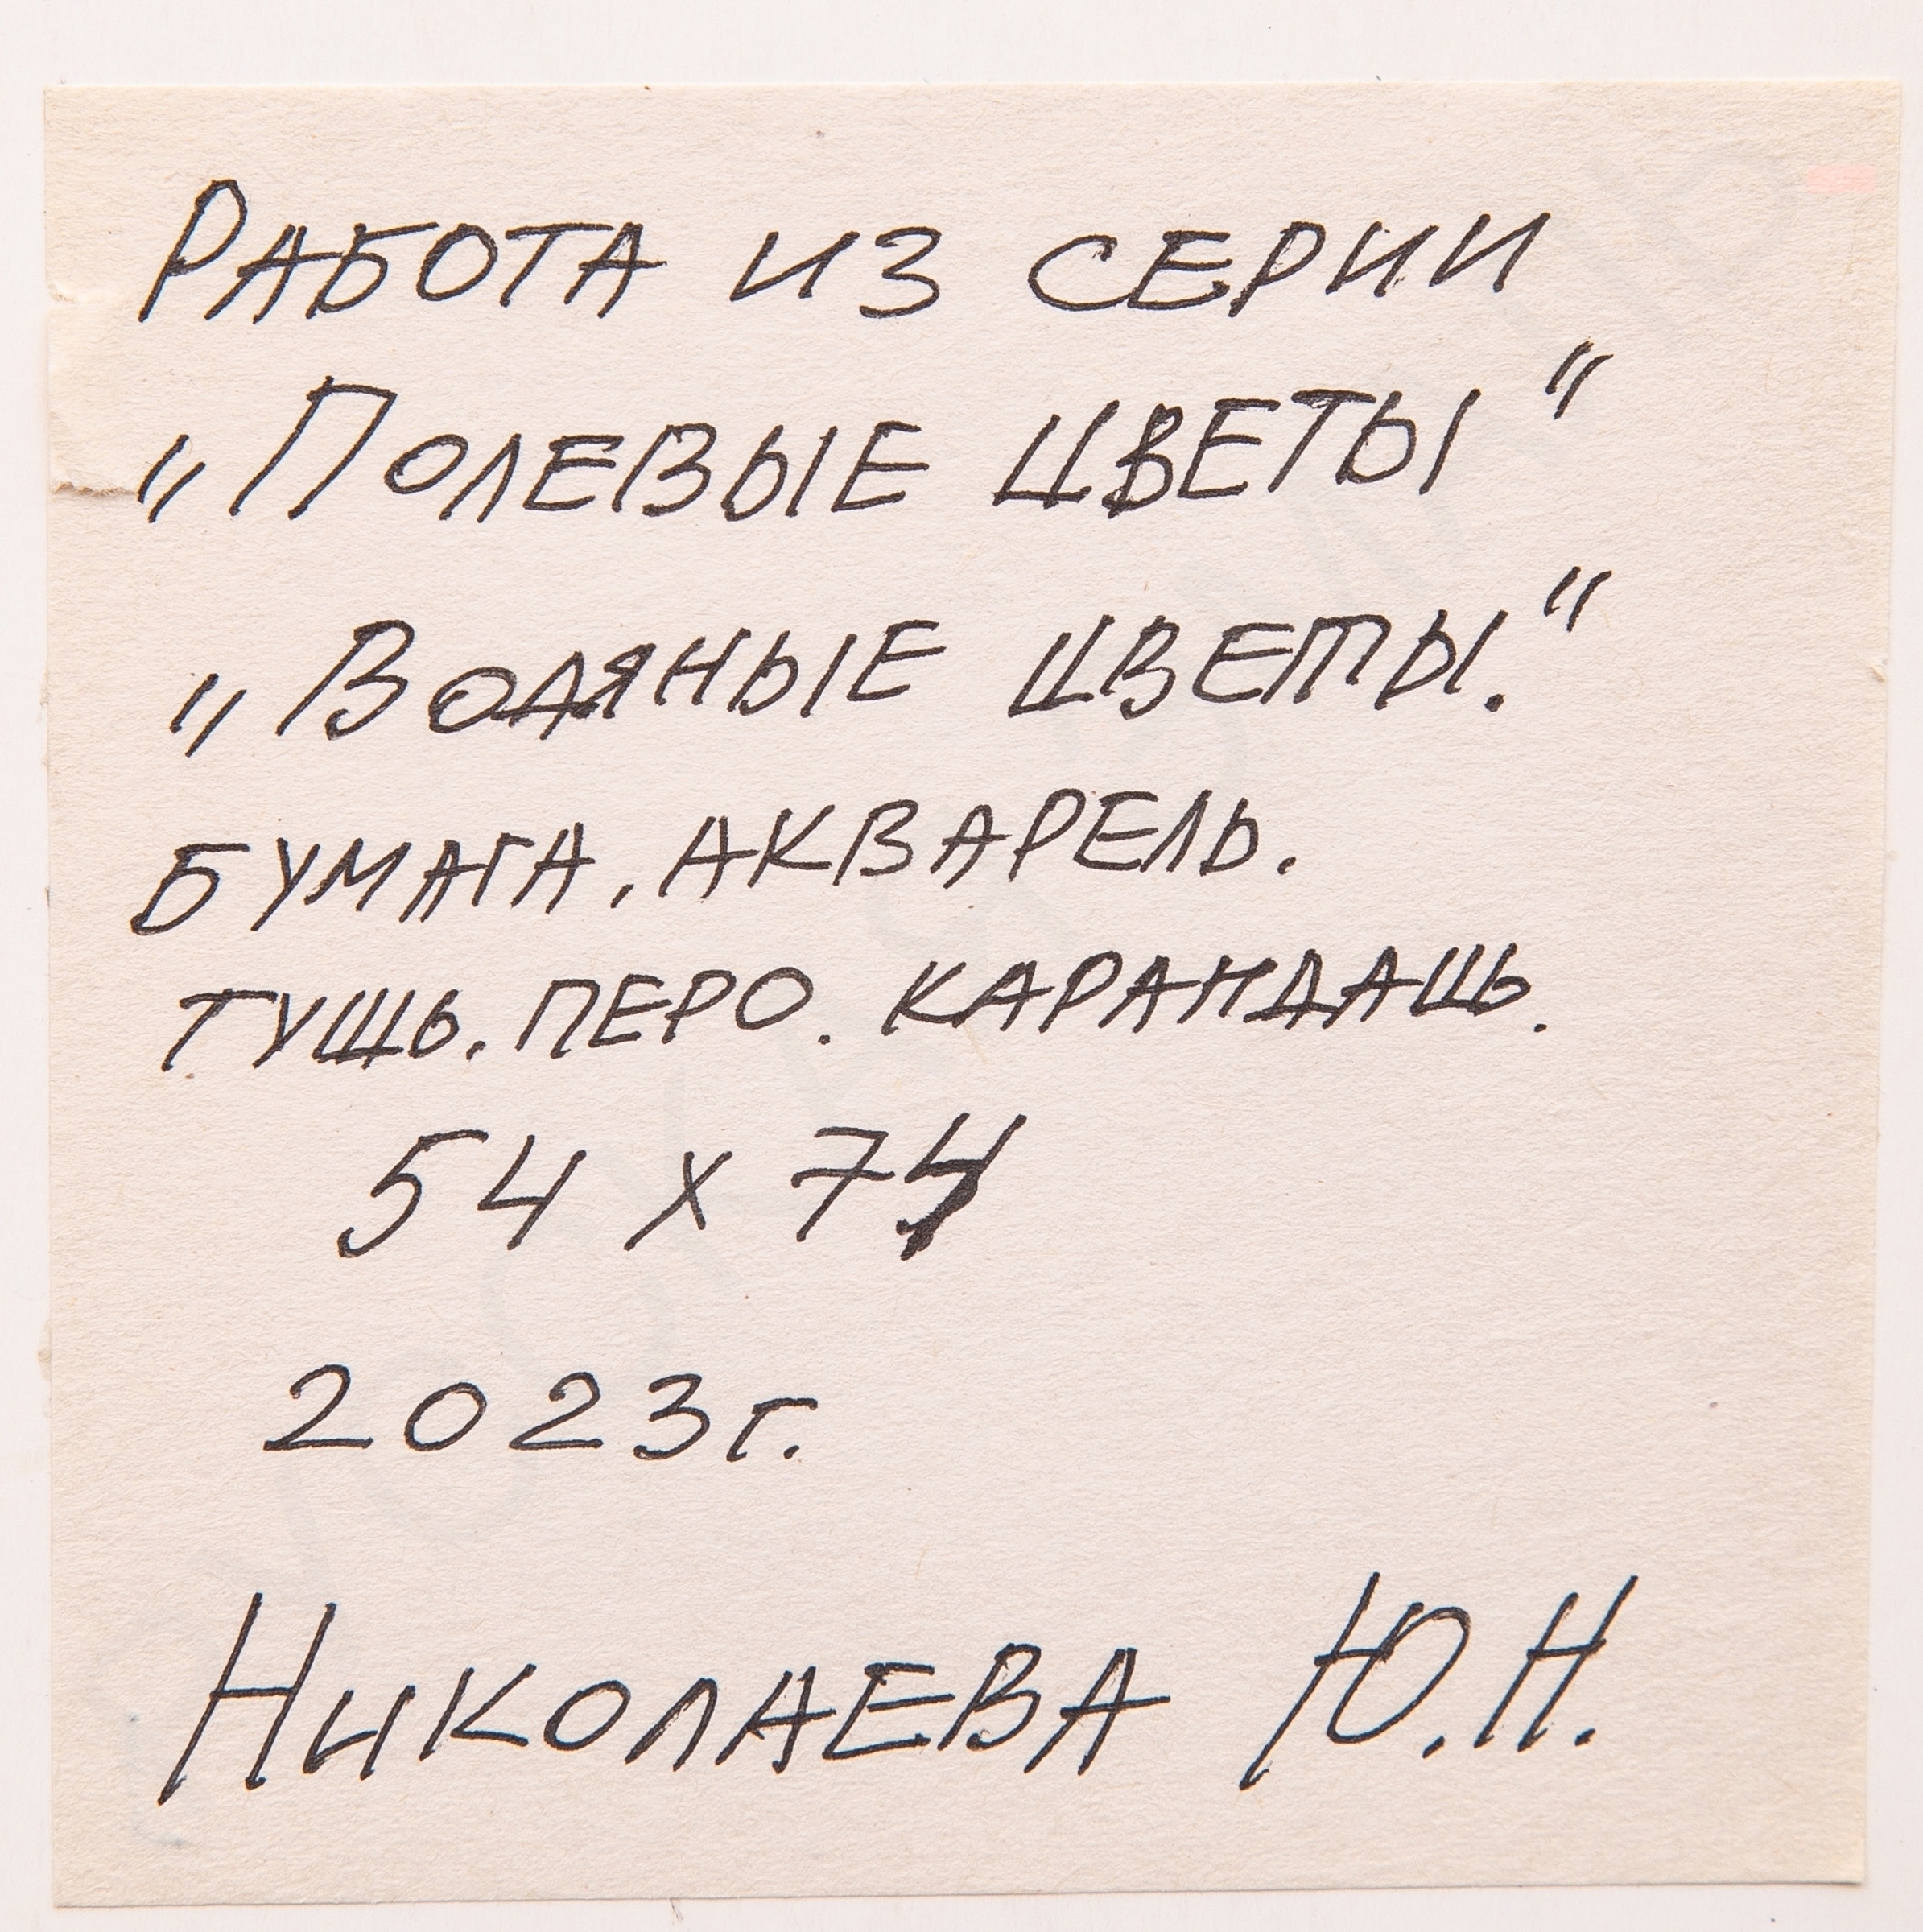 Работа из серии
„Полевые цветы“
„Водяные цветы.“
Бумага, акварель.
Тущь. перо. карандашь.
54 х 74
2023г.
Николаева Ю.Н.